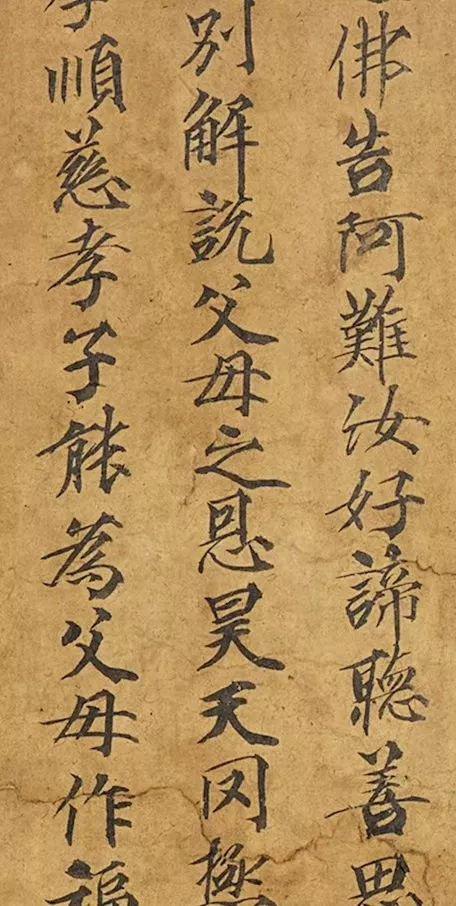 佛告阿難汝好諦聽善思
別解説父母之恩昊天罔極
孝順慈孝子能為父母作福